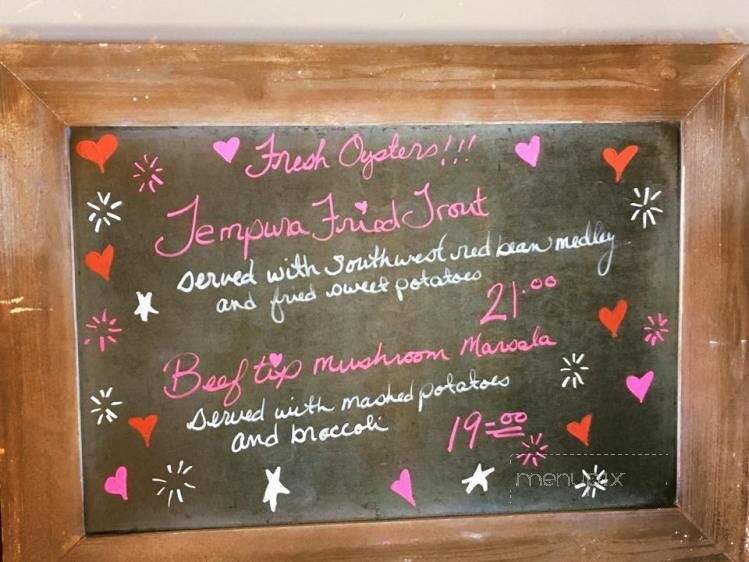 Fresh Oysters!!!
Tempura Fried Trout
served with southwest red bean medley
and fried sweet potatoes
21.00
Beef tip mushroom Marsala
served with mashed potatoes
and broccoli
19.00
menupix